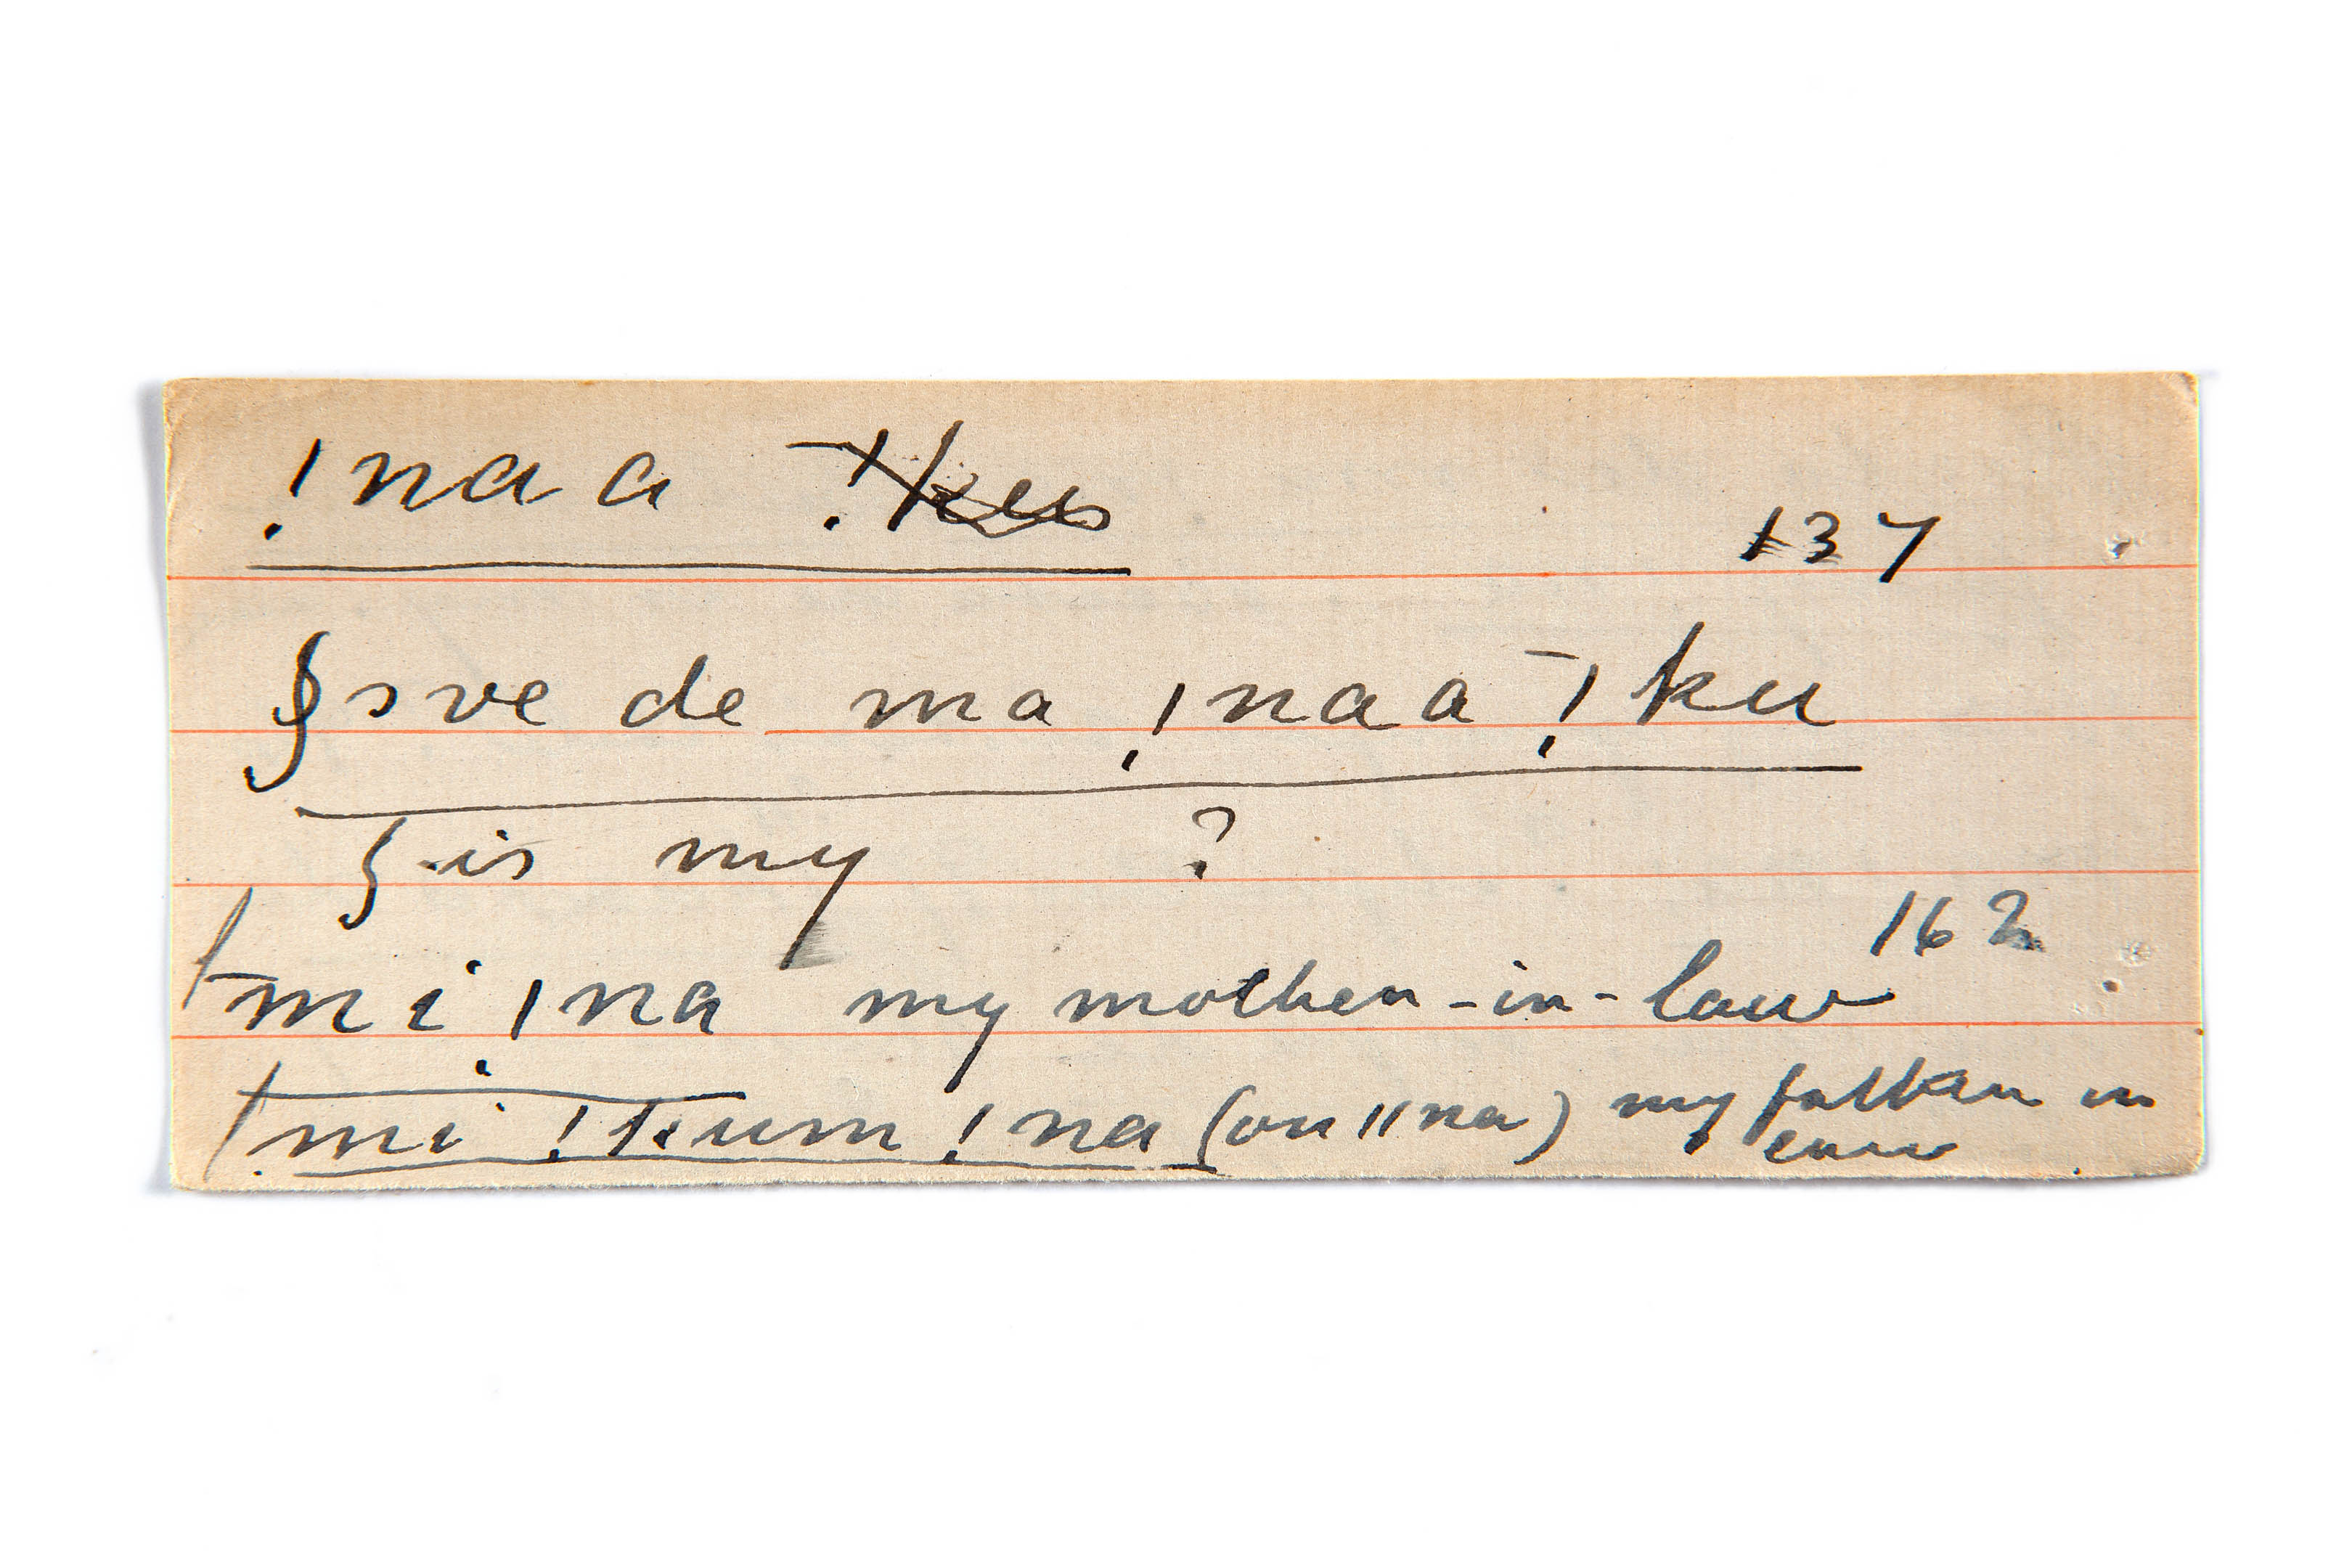 !naa
137
ʃove de ma !naa ‾!ku
ʃ is my ?
162
mi !na my mother-in-law
mi !kum !na (or ǁna) my father in
law